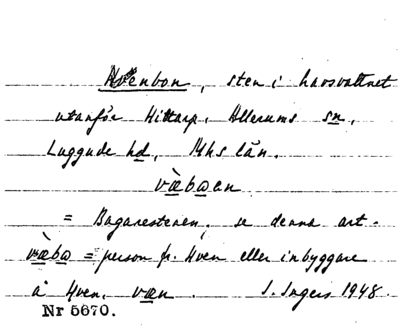 Hvenbon, sten i havsvattnet
utanför Hittarp, Allerums sn,
Luggude hd, Mhs län.
væ̀bɷen
= Bagarestenen, se denna art.
væ̀bɷ = person fr. Hven eller inbyggare
å Hven, væn. I. Ingers 1948.
Nr 5670.